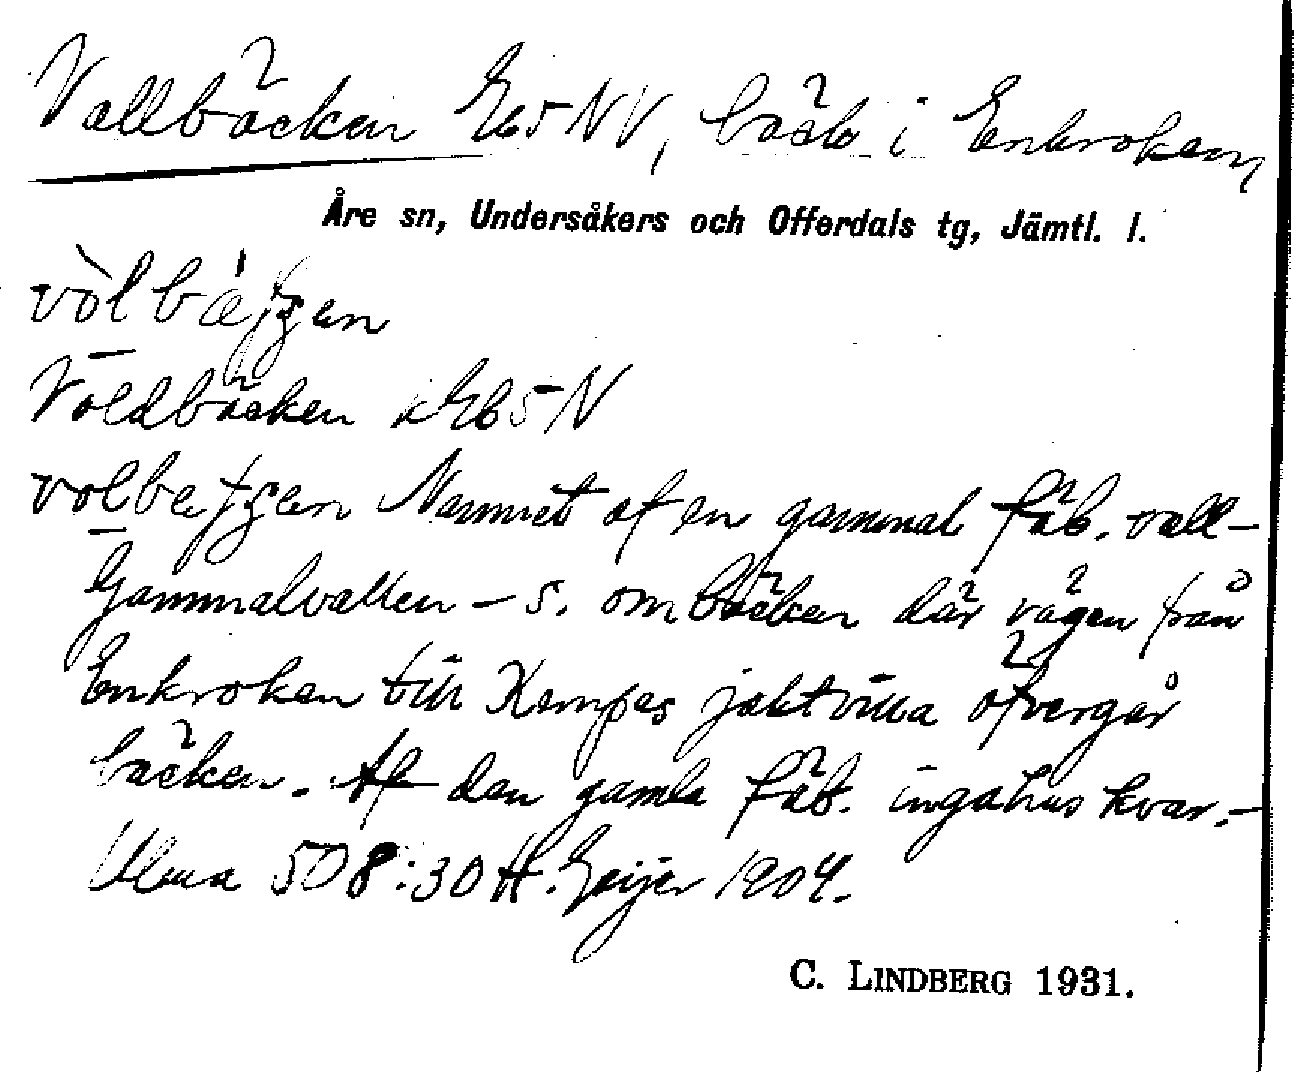 Vallbäcken Eb5NV, bäck i Enkroken,
Åre sn, Undersåkers och Offerdals tg, Jämtl. l.
Voldbäcken kEb5N
Namnet af en gammal fäb. vall –
Gammalvallen – s. om bäcken där vägen från
Enkroken till Kempes jaktvilla öfvergår
bäcken. Af den gamla fäb. inga hus kvar. –
Ulma 508:30 H. Geijer 1904.
C. LINDBERG 1931.